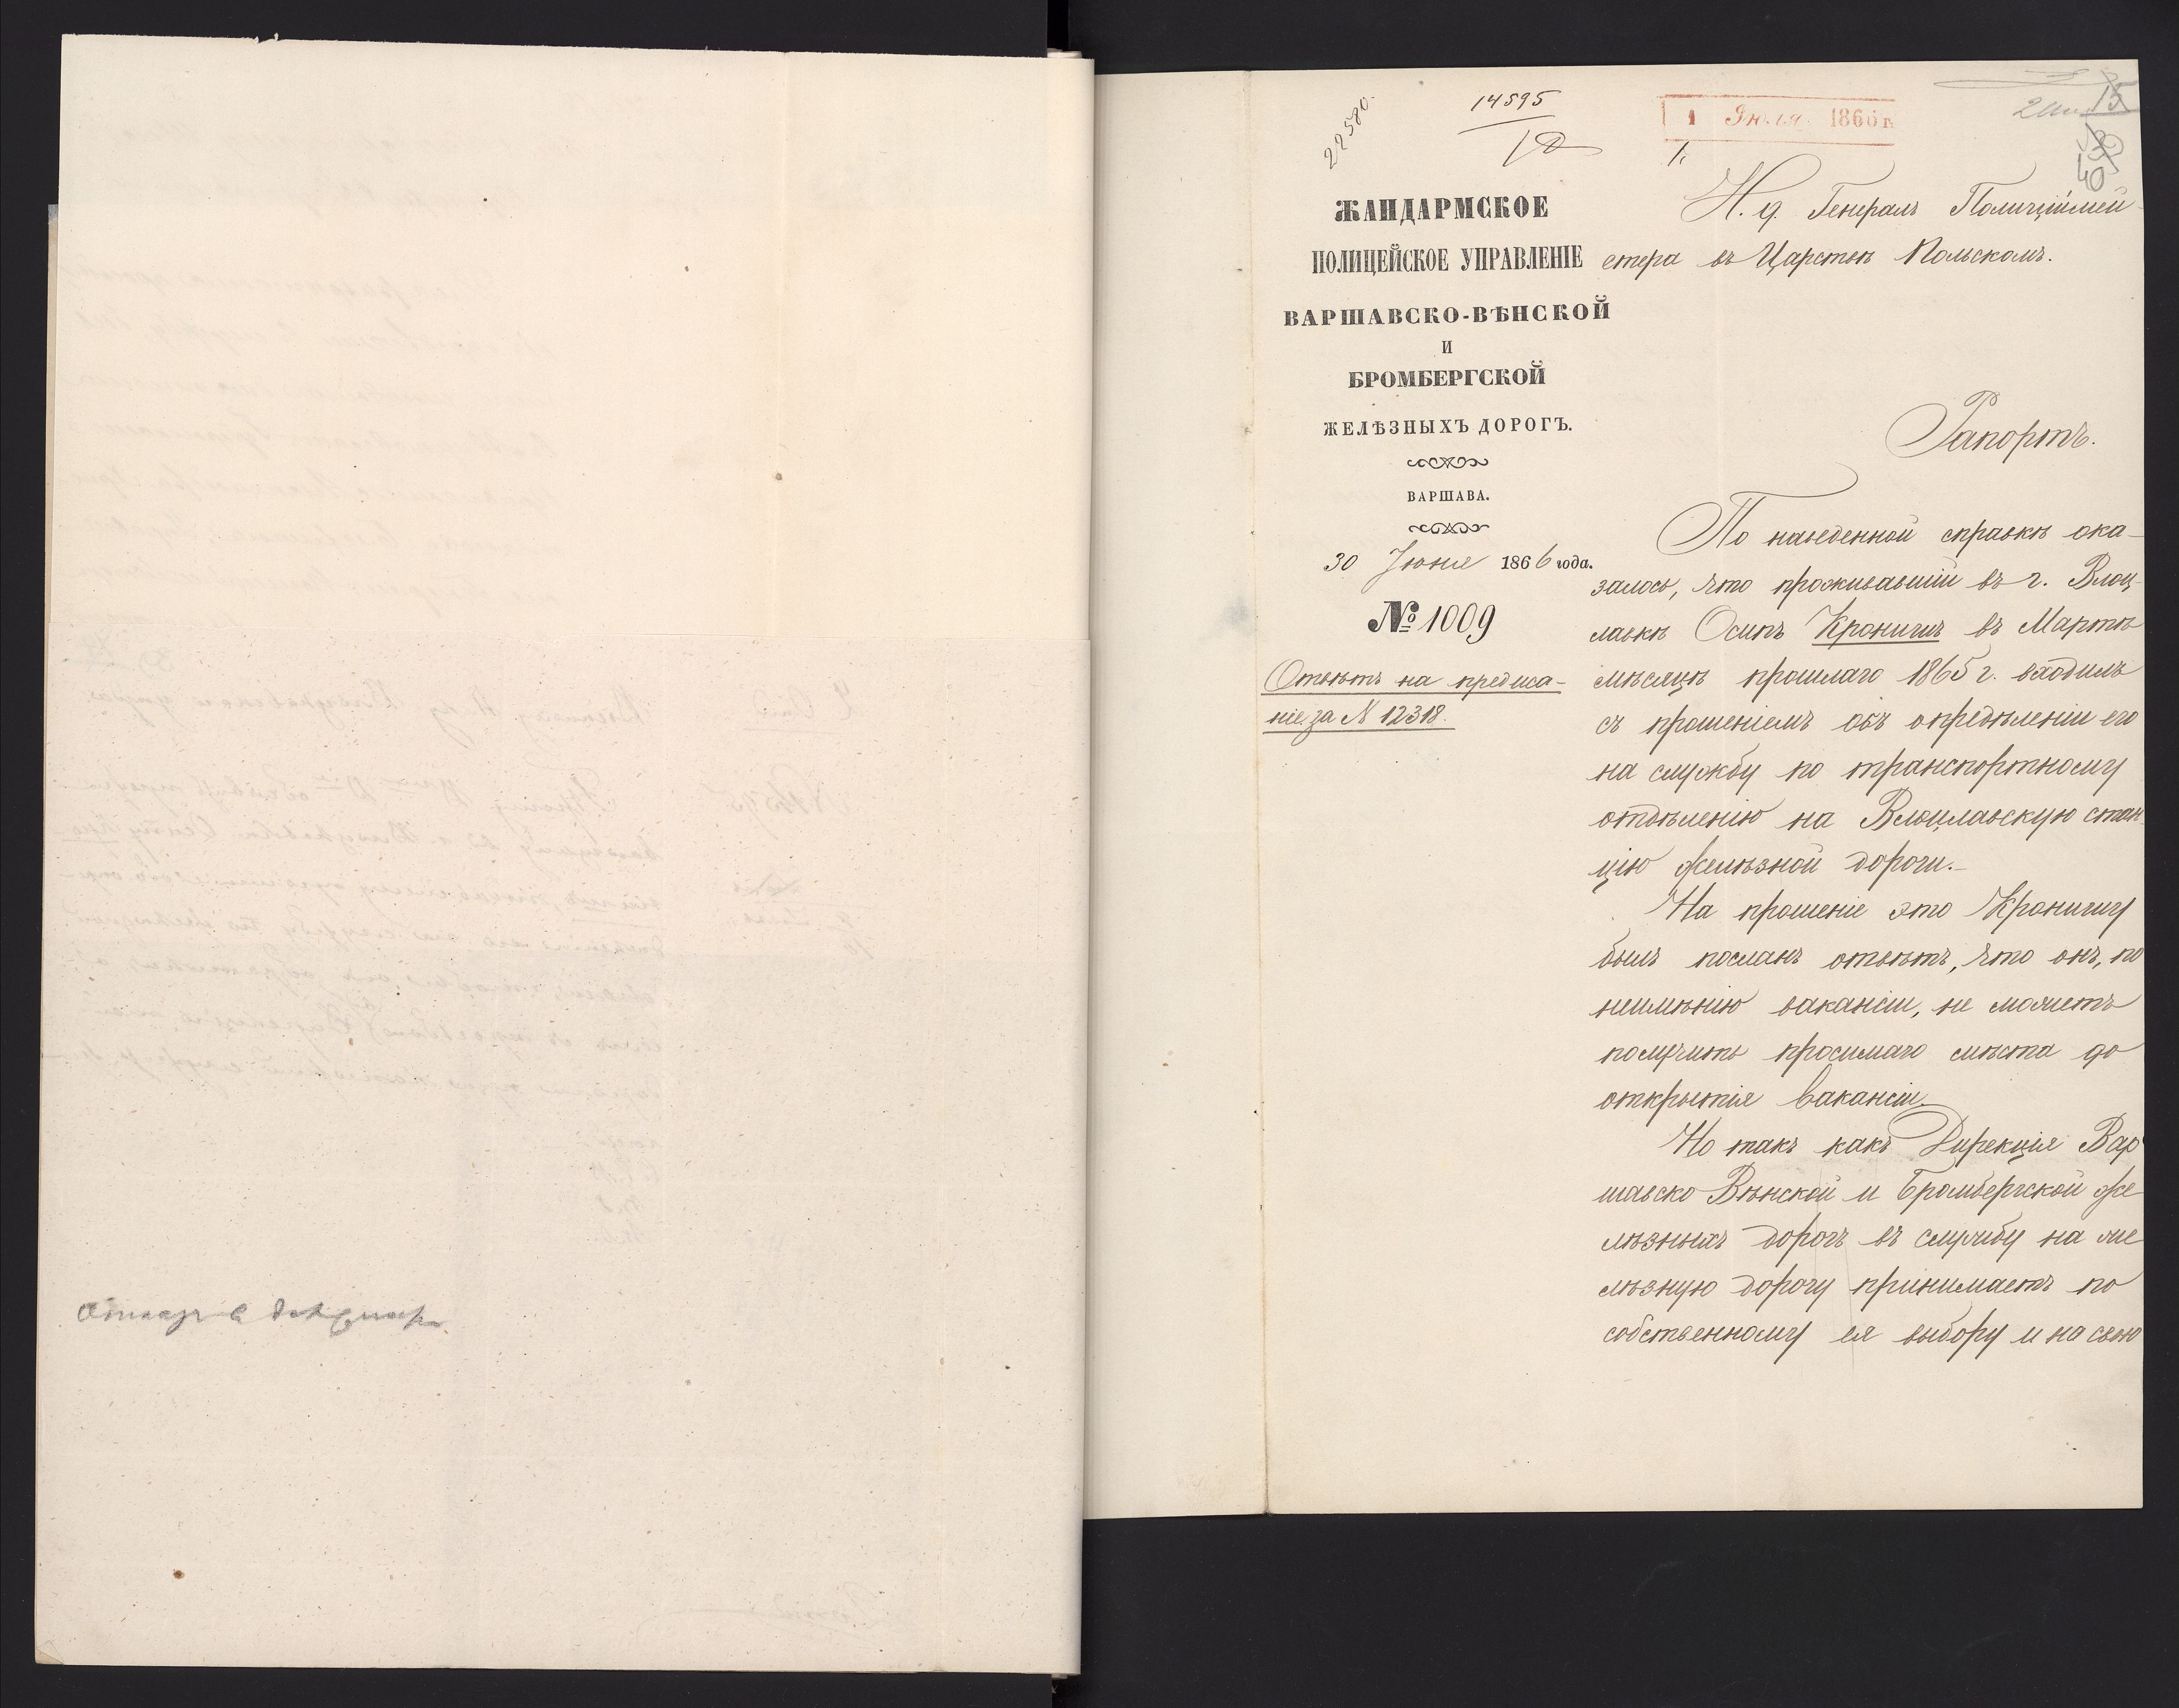 22580.
14595
1 Іюля 1866 г.
ЖАНДАРМСКОЕ
ПОЛИЦЕЙСКОЕ УПРАВЛЕНІЕ
ВАРШАВСКО-ВѢНСКОЙ
И
БРОМБЕРГСКОЙ
ЖЕЛѢЗНЫХЪ ДОРОГЪ.
ВАРШАВА.
30 Іюня 1866 года.
№ 1009
Отвѣтъ на предписа-
ніе за N 12318.
И. д. Генералъ Полиціймей
стера въ Царствѣ Польскомъ.
Рапортъ.
По наведенной справкѣ ока-
залось, что проживавшій въ г. Влоц
лавкѣ Осипъ Кроничъ въ Мартѣ
мѣсяцѣ прошлаго 1865 г. входилъ
съ прошеніемъ объ опредѣленіи его
на службу по транспортному
отдѣленію на Влоцлавскую стан
цію желѣзной дороги.-
На прошеніе это Кроничу
былъ посланъ отвѣтъ, что онъ, по
неимѣнію вакансіи, не можетъ
получить просимаго мѣста до
открытія вакансіи.
Но такъ какъ Дирекція Вар
шавско Вѣнской и Бромбергской же
лѣзныхъ дорогъ въ службу на же
лѣзную дорогу принимаетъ по
собственному ея выбору и на свою